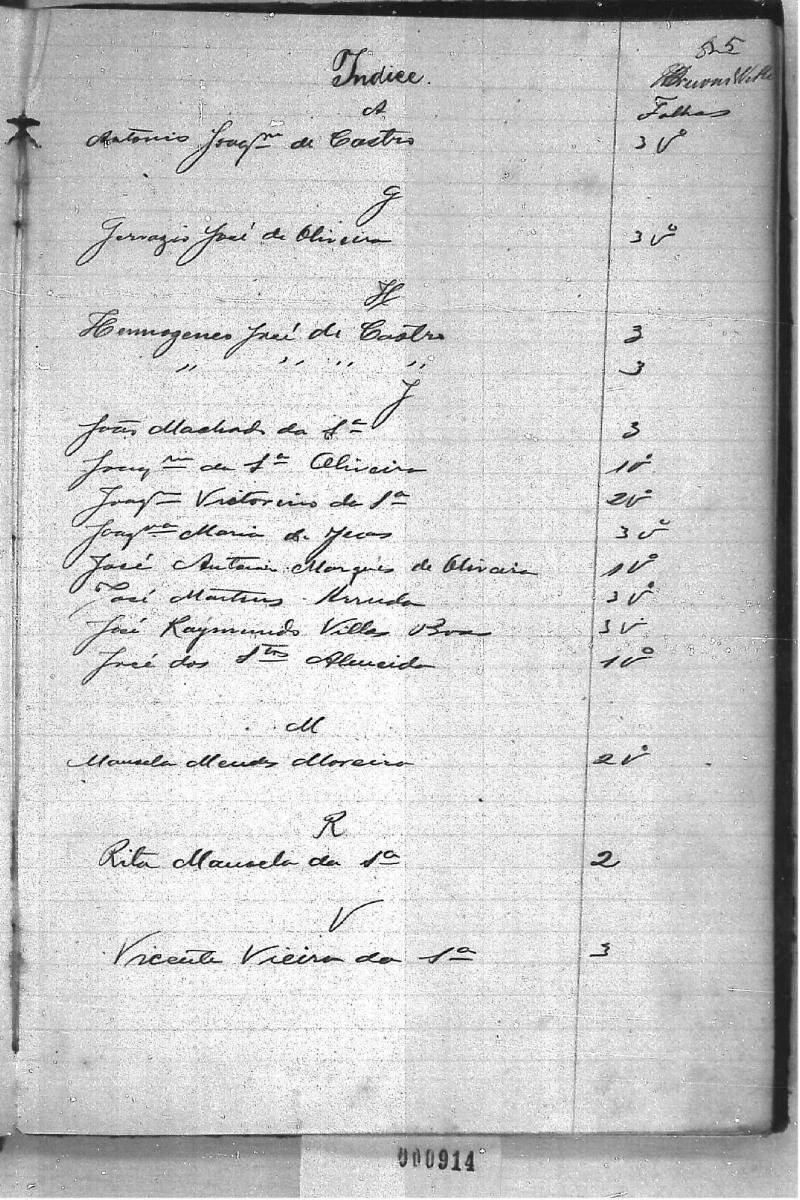 55
Indice.
Folhas
A
Antonio Joaqm de Castro 3 vº
G
Gervazio José de Oliveira 3 vº
H
Hermogenes José de Castro 3
,, ,, ,, ,, 3
J
João Machado da Sa 3
Joaqm da Sa Oliveira 1vº
Joaqm Victorino da Sa 2vº
Joaqna Maria de Jesus 3 vº
José Antonio Marques de Oliveira 1vº
José Martins Arruda 3vº
José Raymundo Villas Boas 3vº
José dos Stos Almeida 1vº
M
Manoela Mendes Moreira 2vº
R
Rita Manoela da Sa 2
V
Vicente Vieira da Sa 3
000914